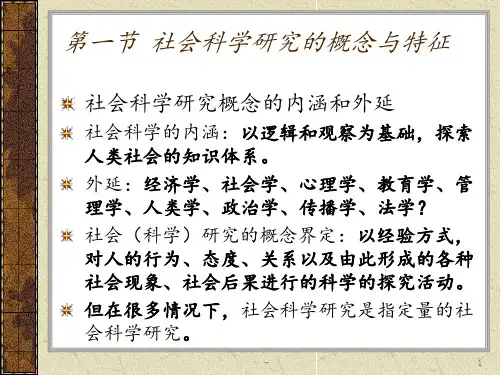 第一节 社会科学研究的概念与特征
社会科学研究概念的内涵和外延
社会科学的内涵：以逻辑和观察为基础，探索
人类社会的知识体系。
外延：经济学、社会学、心理学、教育学、管
理学、人类学、政治学、传播学、法学？
社会（科学）研究的概念界定：以经验方式，
对人的行为、态度、关系以及由此形成的各种
社会现象、社会后果进行的科学的探究活动。
但在很多情况下，社会科学研究是指定量的社
会科学研究。
-
1